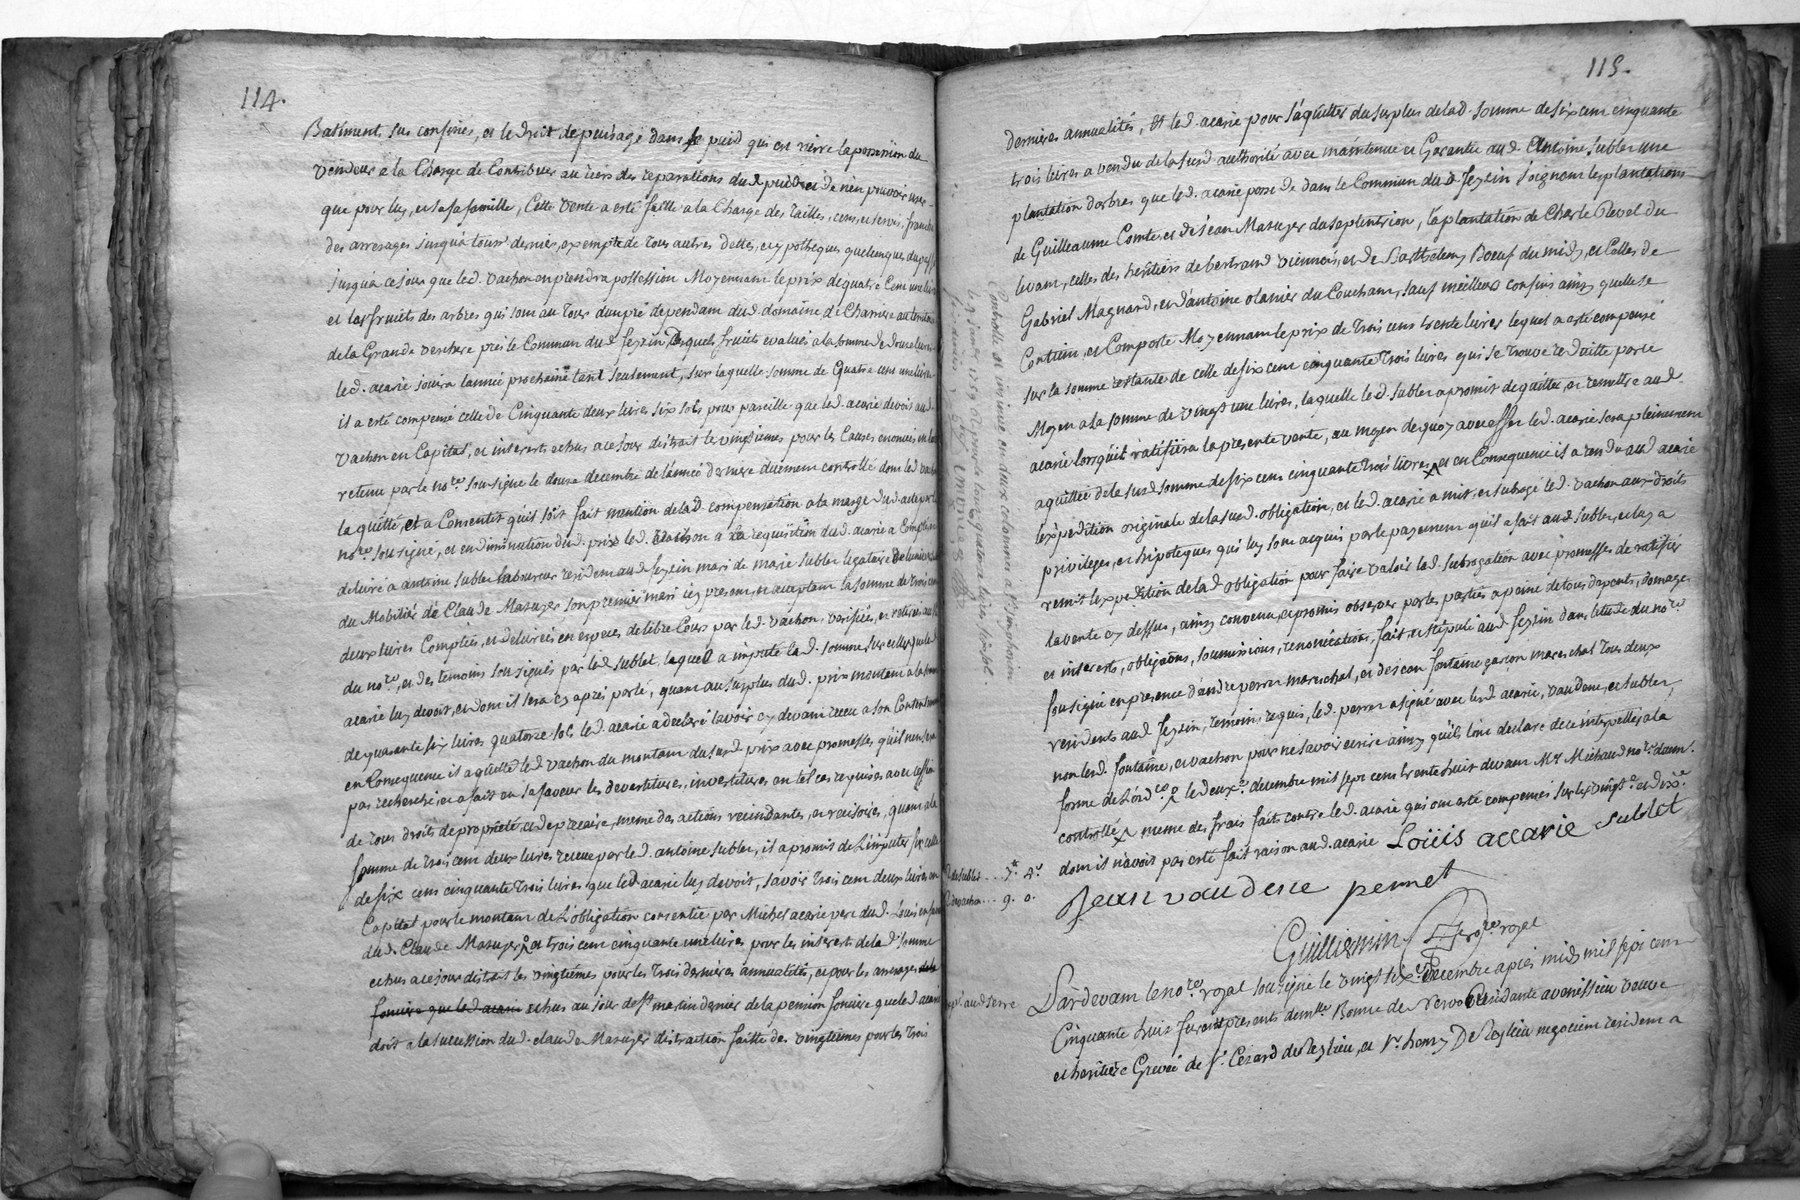 114.
Batiment sus confinés, et le droit de puisage dans le puid qui est rierre la possession du
vendeur a la charge de contribuer au tiers des reparations dud puid et de n'en pouvoir user
que pour luy, et sa famille, cette vente a esté faitte a la charge des tailles, cens et servis, franche
des arrerages jusqu'a tour dernier, exempte de tous autres dettes, et ypotheques quelconques du passé
jusqu'a ce jour que led. vachon en prendra possession Moyennant le prix de quatre cent une livre
et les fruits des arbres qui sont au tour du pré dependant dud. domaine de
de la Grande verchere prés le Commun dud feyzin lesquels fruits evalués a la somme de douze livres
led. acarie jouira l'année prochaine tant seulement, sur laquelle somme de quatre cent une livre
il a esté compensé celle de Cinquante deux livres six sols pour pareille que led. acarie devoit aud.
vachon en Capital, et interests echus a ce jour distrait le vingtiemes pour les Causes enoncées
retenu par le no.re sousigné le douze decembre de l'année derniere duement controllé dont led vachon
la quitté, et a Consentit qu'il soit fait mention de lad. compensation a la marge dud. acte par le
no.re sousigné, et en diminution dud. prix led. vachon a la requisition dud. acarie a Comptant
delivré a antoine sublet laboureur resident aud feyzin mari de marie sublet legataire de l'universel
du Mobilier de Claude Mazuyer son premier mari icy present, et acceptant la somme de trois cent
deux livres Comptées, et delivrées en especes de libre Cours par led. vachon, verifiées, et retirées
du no.re, et des temoins sousignés par led sublet, laquel a imputé lad. somme sur celle que led
acarie luy devoit, et dont il sera cy aprés parlé, quant au surplus dud. prix montant a la somme
de quarante six livres quatorze sols led. acarie a declaré l'avoir cy devant receu a son Contentement
en Consequence il a quitté led vachon du montant dusud prix avec promesses qu'il n'en sera
pas recherché, et a fait en sa faveur les devestitures, investitures en tel cas requises avec cession
de tous droits de proprieté, et de precaire, meme des actions rescindantes, et rescisoires, quant a la
somme de trois cent deux livres receue par led. antoine sublet, il a promis de l'imputer sur celle
de six cens cinquante trois livres que led acarie luy devoit, savoir trois cent deux livres en
Capital pour le montant de l'obligation consentie par Michel acarie pere dud. Louis en faveur
dud. Claude Mazuyer et trois cent cinquante une livres pour les interests de lad. somme
echus a ce jour distrait les vingtiemes pour les trois dernieres annualités, et pour les arrerages de la
fonciere que led acarie echus au jour de st martin dernier de la pension fonciere que led acarie
doit a la sucession dud. claude Mazuyer distraction faitte des vingtiemes pour les trois
115.
dernieres annualités, et led. acarie pour s'aquitter du surplus de lad somme de six cent cinquante
trois livres a vendu de la susd authorité avec maintenue et Garantie aud. Antoine sublet une
plantation d'arbres que led. acarie possede dans le Commun dud feyzin joignant les plantations
de Guilleaume Comte, et de jean Mazuyer du septentrion, la plantation de Charle Revel du
levant, celles des heritiers de bertrand viennois, et de Barthelemy Boeuf du midy, et celles de
Gabriel Magnard, et d'antoine olanier du Couchant, sauf meilleurs confins ainsy qu'elle se
Contient, et Comporte Moyennant le prix de trois cens trente livres lequel a esté compensé
sur la somme restante de celle de six cent cinquante trois livres qui se trouve reduitte par ce
Moyen a la somme de vingt une livres, laquelle led. sublet a promis de quitter, et remettre aud.
acarie lorsqu'il ratifiera la presente vente, au moyen de quoy avec effet led. acarie sera pleinement
aquitté de la susd somme de six cent cinquante trois livres, et en Consequence il a rendu aud acarie
l'expedition originale de la susd. obligation, et led. acarie a mis, et subrogé led. vachon aux droits
privileges, et hipoteques qui luy sont acquis par le payement qu'il a fait aud sublet, et luy a
remis l'expedition de lad obligation pour faire valoir lad. subrogation avec promesses de ratifier
la vente cy dessus, ainsy convenu, et promis observer par les parties a peine de tous depents, domages
et interests, obligaons, soumissions, renonciations, fait et stipulé aud feyzin dans l'etude du no.re
sousigné en presence d'andre pernet marechal, et de jean fontaine garçon marechal tous deux
residents aud feyzin, temoins requis, led. pernet a signé avec lesd acarie, vaudene, et sublet,
non lesd. fontaine, et vachon pour ne savoir ecrire ainsy qu'ils l'ont declaré de ce interpellés a la
forme de l'ord.ce, le deux.e decembre mil sept cens trente huit devant M.e Michaud no.re duem.t
controllé, meme des frais faits contre led. acarie qui ont esté compensés sur les vingt.e et dix.e
dont il n'avoit pas esté fait raison aud. acarie Loüis accarie sublet
Jean vaudene pernet
Guilliermin no.re royal
Pardevant le no.re royal sousigné le vingt six.e decembre aprés midy mil sept cent
Cinquante huit furent presents dem.lle Bonne de Residante a venissieu veuve
et heritiere Grevée de s.r Cezard de Reylieu, et s.r henry De Reylieu negocient resident a
Controllé et insinué en deux chapitres a st simphorien
le janvier 1759 Receu quatorze livres six sols.